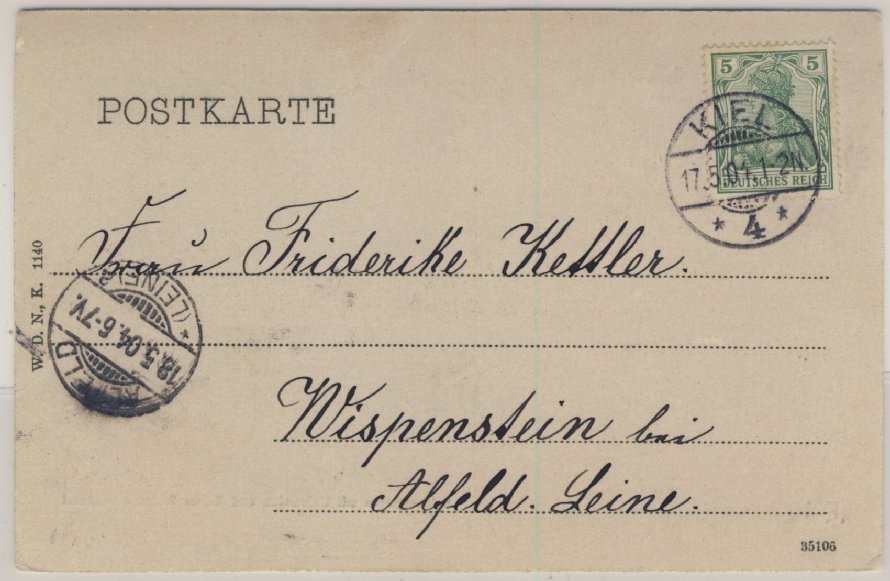 POSTKARTE
5 5
DEUTSCHES REICH
KIEL
17.5.04.1-2N.
* 4 *
Frau Friderike Kettler.
Wispenstein bei
Alfeld. Leine.
W. D. N., K. 1140
ALFELD
18.5.04.6-7V.
* (LEINE)
35106